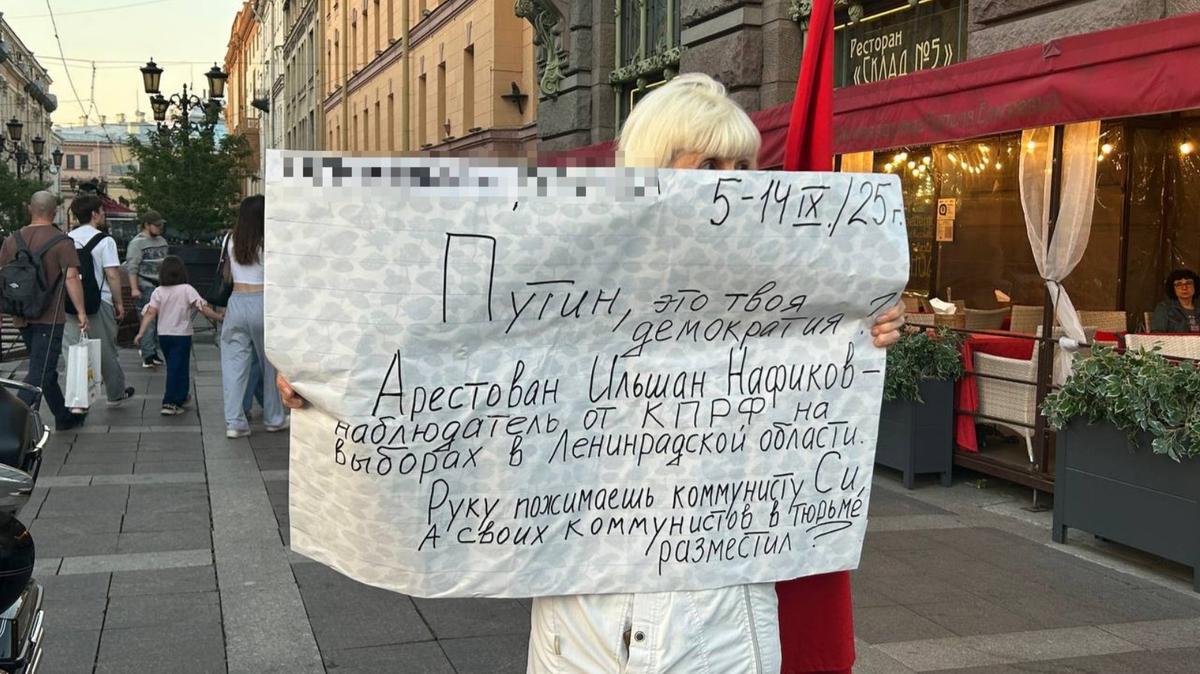 Ресторан
«СКЛАД №5»
5-14 IX./25г.
Путин, это твоя
демократия?
Арестован Ильшан Нафиков-
наблюдатель от КПРФ на
выборах в Ленинградской области.
Руку пожимаешь коммунисту Си,
А своих коммунистов в тюрьме
разместил?